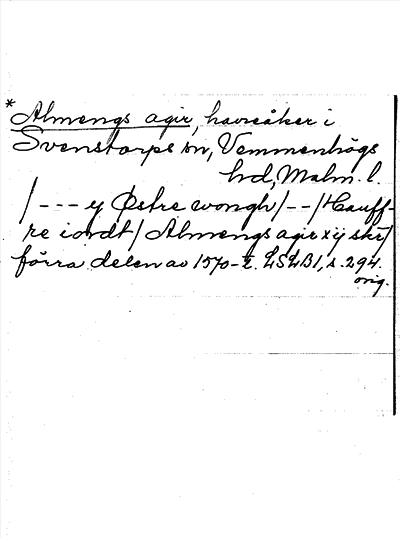 *Almengs agir, havreåker i
Svenstorps sn, Vemmenhögs
hd, Malm. l.
/--- y Østre wongh/--/Hauff-
re iordt/Almengs agir xij skr/
förra delen av 1570-t. LSLB1, s. 294.
orig.